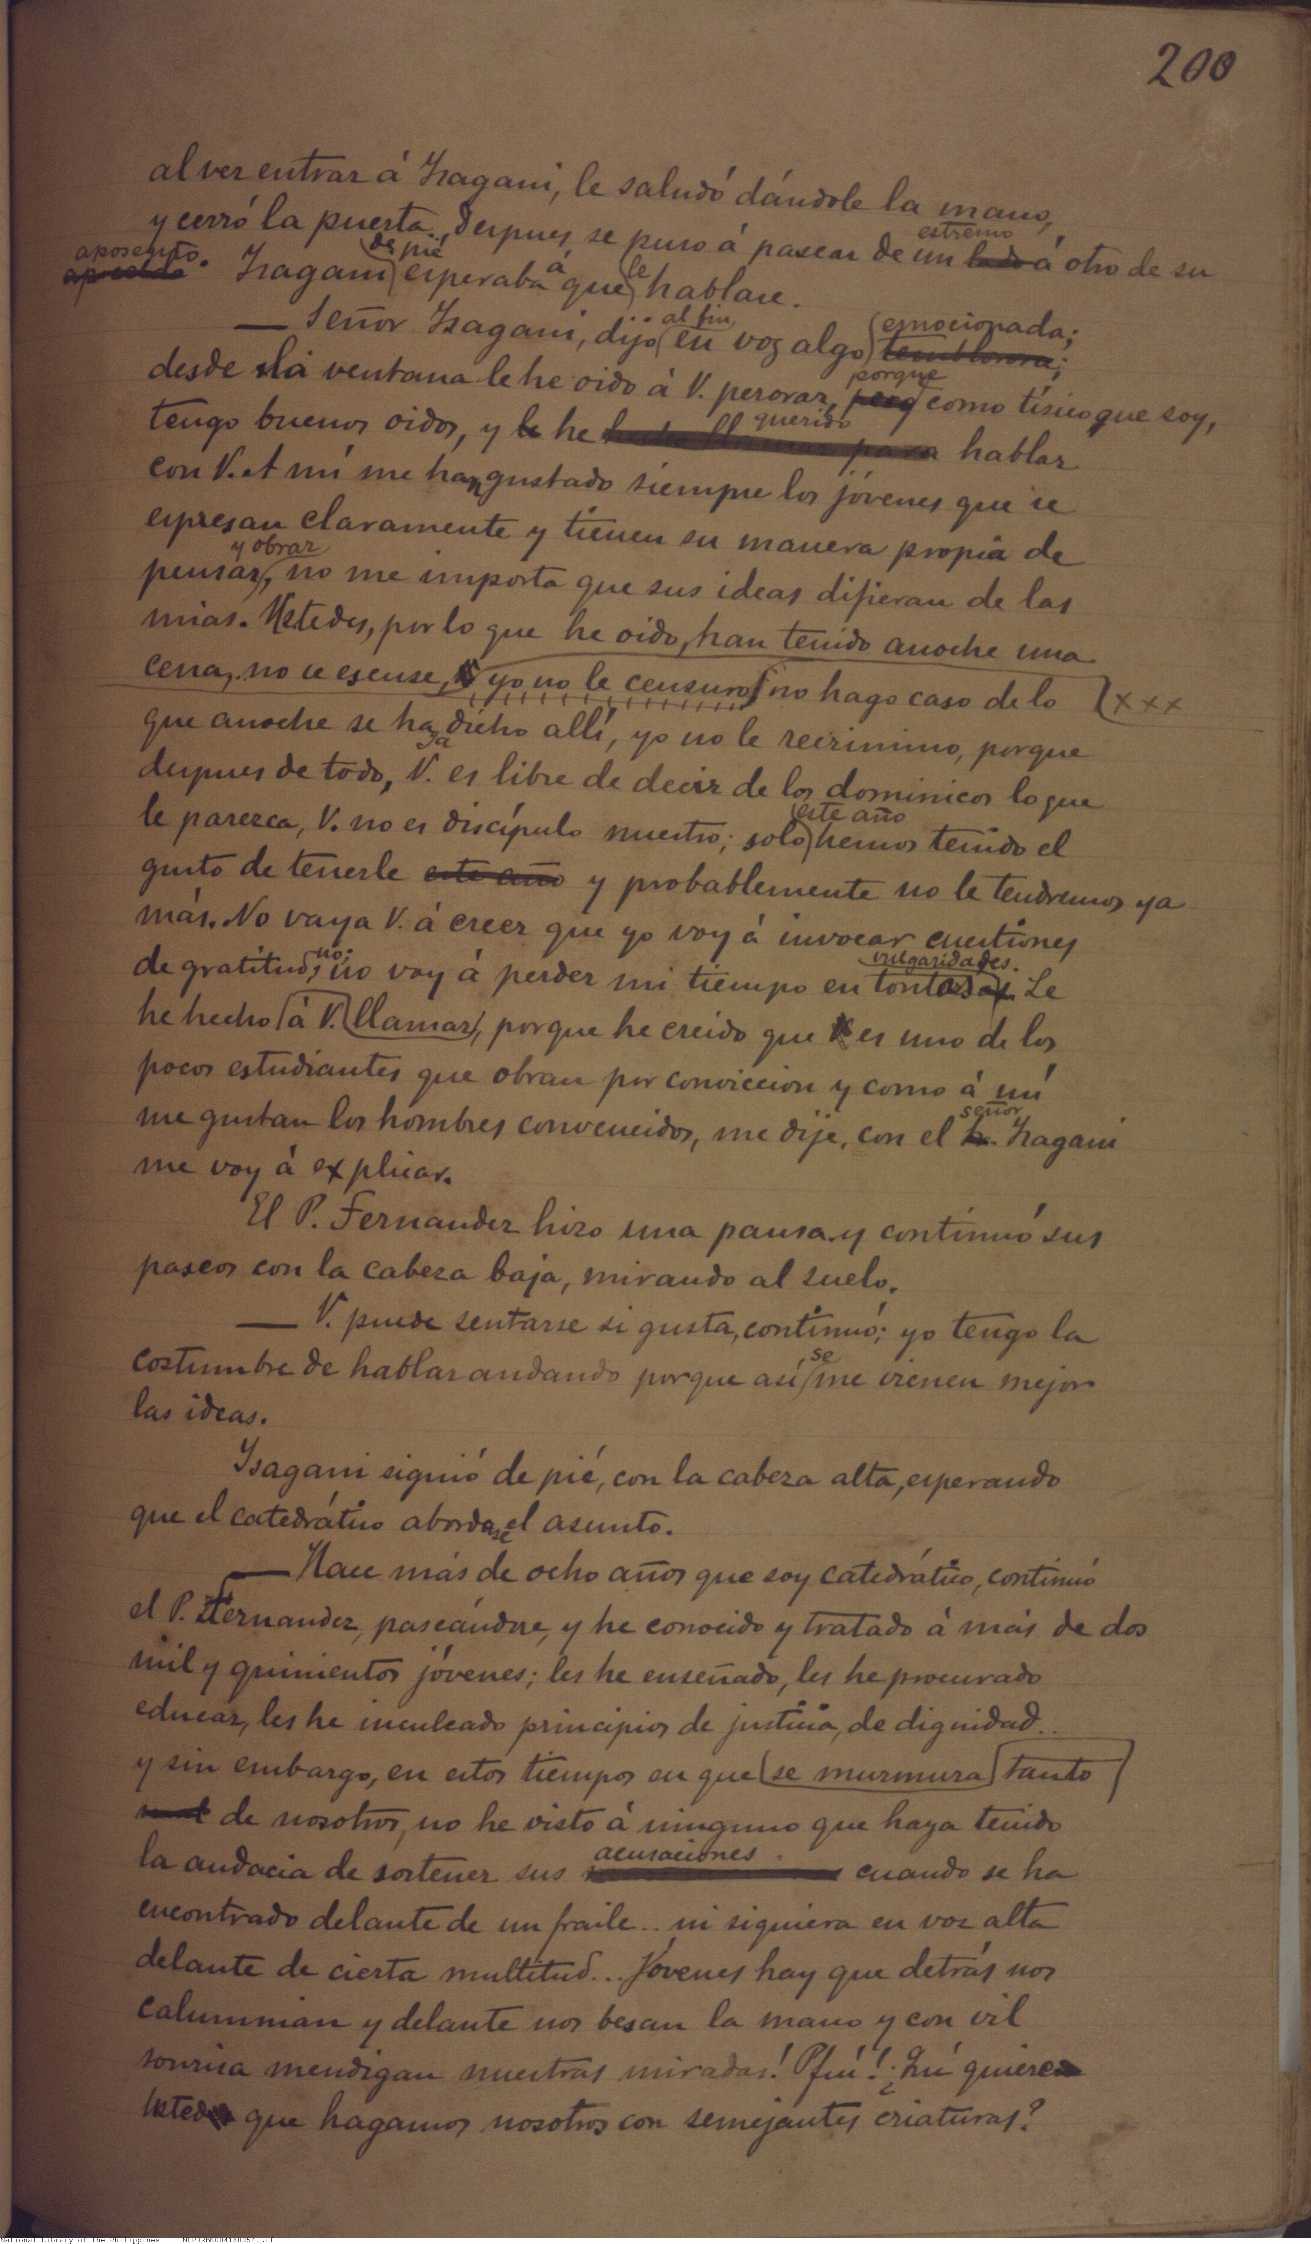 200
al ver entrar á Isagani, le saludó dándole la mano,
y cerró la puerta. Despues se puso á pasear de un lado extremo á otro de su
aposento. Isagani de pié esperaba á que le hablase.
— Señor Isagani, dijo al fin en voz algo temblorosa; emocionada;
desde la ventana le he oido á V. perorar, pero porque como tísico que soy,
tengo buenos oidos, y le he hecho llamar para querido hablar
con V. A mí me han gustado siempre los jóvenes que se
espresan claramente y tienen su manera propia de
pensar y obrar, no me importa que sus ideas difieran de las
mias. Ustedes, por lo que he oido, han tenido anoche una
cena, no se escuse, yo no le censuro no hago caso de lo xxx
que anoche se haya dicho allí, yo no le recrimino, porque
despues de todo, V. es libre de decir de los dominicos lo que
le parezca, V. no es discípulo nuestro; solo este año hemos tenido el
gusto de tenerle este año y probablemente no le tendremos ya
más. No vaya V. á creer que yo voy á invocar cuestiones
de gratitud, no; no voy á perder mi tiempo en tontas vulgaridades. Le
he hecho á V. llamar, porque he creido que es uno de los
pocos estudiantes que obran por conviccion y como á mí
me gustan los hombres convencidos, me dije, con el señor Isagani
me voy á explicar.
El P. Fernandez hizo una pausa y continuó sus
paseos con la cabeza baja, mirando al suelo.
— V. puede sentarse si gusta, continuó; yo tengo la
costumbre de hablar andando porque así se me vienen mejor
las ideas.
Isagani siguió de pié, con la cabeza alta, esperando
que el catedrático abordase el asunto.
— Hace más de ocho años que soy catedrático, continuó
el P. Fernandez, paseándose, y he conocido y tratado á más de dos
mil y quinientos jóvenes; les he enseñado, les he procurado
educar, les he inculcado principios de justicia, de dignidad..
y sin embargo, en estos tiempos en que se murmura tanto
mal de nosotros, no he visto á ninguno que haya tenido
la audacia de sostener sus acusaciones cuando se ha
encontrado delante de un fraile.. ni siquiera en voz alta
delante de cierta multitud... Jóvenes hay que detrás nos
calumnian y delante nos besan la mano y con vil
sonrisa mendigan nuestras miradas! Pfuí! ¿Qué quiere
usted que hagamos nosotros con semejantes criaturas?